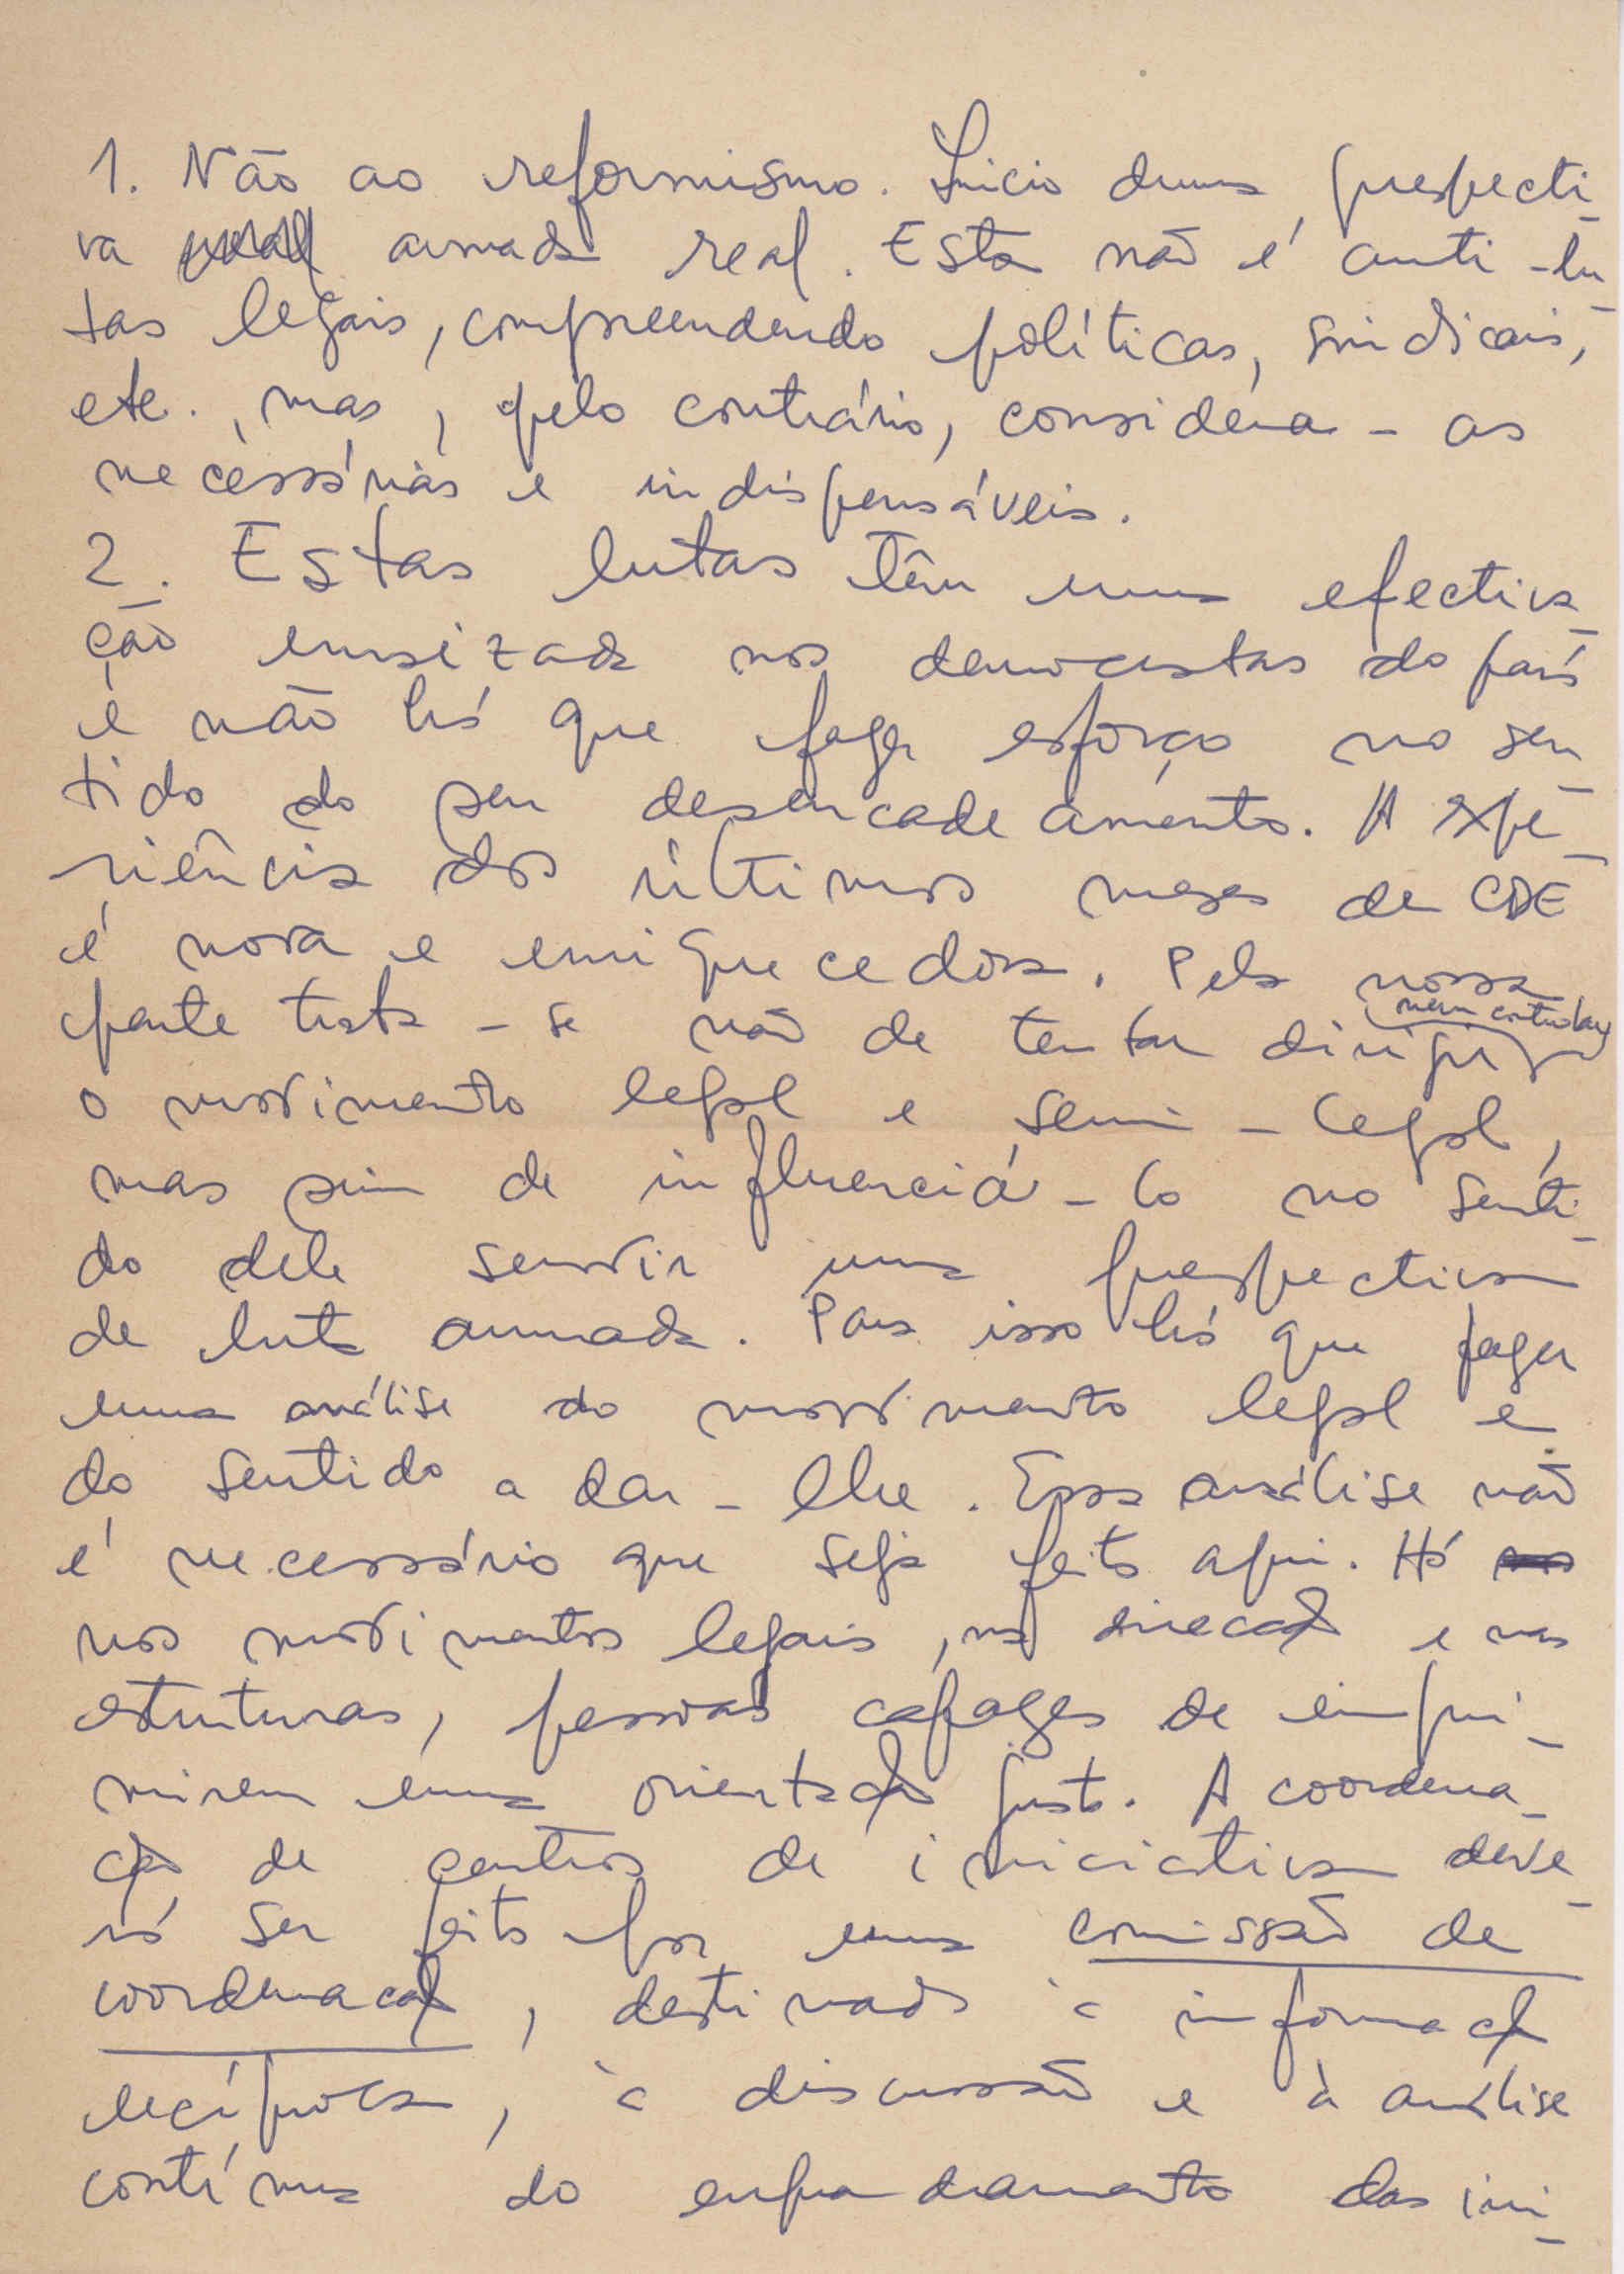 1. Não ao reformismo. Início duma prespecti-
va armada real. Esta não é anti-lu-
tas legais, compreendendo políticas, sindicais,
etc., mas, pelo contrário, considera-as
necessárias e indispensáveis.
2. Estas lutas têm uma efectiva-
ção enraizada nos democratas do país
e não há que fazer esforço no sen-
tido do seu desencadeamento. A expe-
riência dos últimos meses de CDE
é nova e enriquecedora. Pela nossa
parte trata-se não de tentar dirigir nem controlar
o movimento legal e semi-legal,
mas sim de influenciá-lo no senti-
do dele servir uma prespectiva
de luta armada. Para isso há que fazer
uma análise do movimento legal e
do sentido a dar-lhe. Essa análise não
é necessário que seja feita aqui. Há
nos movimentos legais, na direcção e nas
estruturas, pessoas capazes de impri-
mirem uma orientação justa. A coordena-
ção de centros de iniciativa deve-
rá ser feita por uma comissão de
coordenação, destinada à informação
recíproca, à discussão e à análise
contínua do enquadramento das ini-